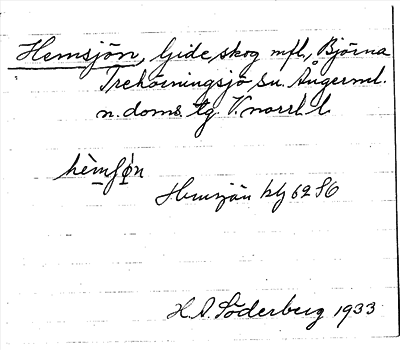 Hemsjön, Gideåskog mfl, Björna
Trehörningsjö sn. Ångerml.
n. doms. tg. V.norrl. l.
hèmʃø̀n
Hemsjön kbg 62 S6
H.A. Söderberg 1933